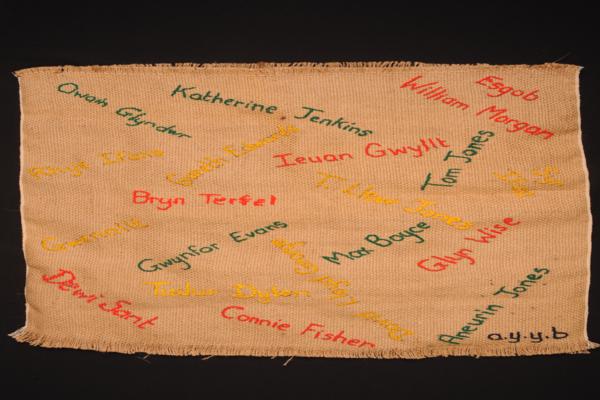 Owain Glyndwr
Katherine Jenkins
Esgob
William Morgan
Gareth Edwards
Ieuan Gwyllt
Tom Jones
Bryn Terfel
T. Llew Jones
Gwynfor Evans
Max Boyce
Glyn Wise
Dewi Sant
Tudur Dylan
Connie Fisher
Aneurin Jones
a.y.y.b